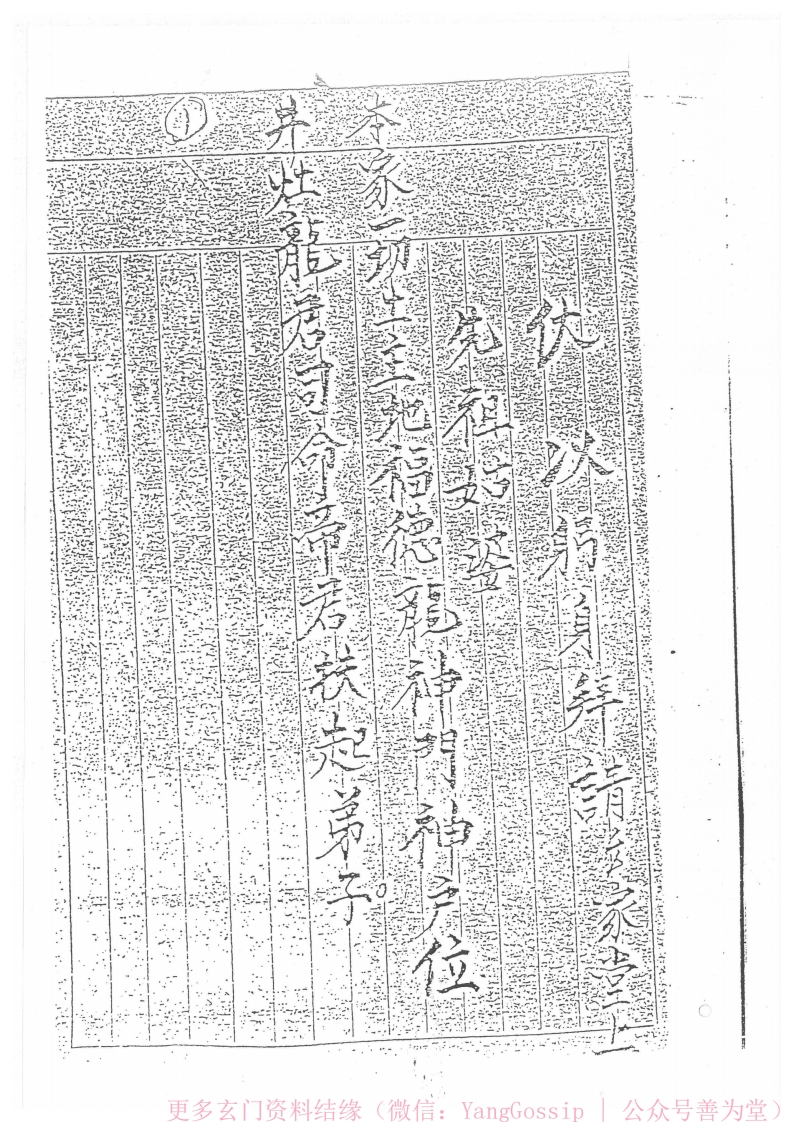 伏以 躬身拜請 家堂上
先祖姑婆
本家一切土主地福德龍神門神户位
井灶龍君司命帝君扶起弟子。
①
更多玄门资料结缘（微信：YangGossip | 公众号善为堂）